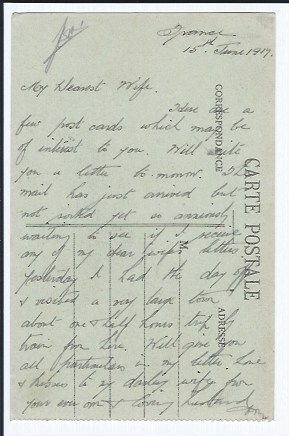 France
15th June 1917.
My Dearest Wife.
Here are a
few post cards which may be
of interest to you. Will write
you a letter to morrow. The
mail has just arrived but
not sorted yet so anxiously
waiting to see if I receive
any of my dear wife's letters
Yesterday I had the day off
& visited a very large town
about one & half hours trip by
train from here. Will give you
all particulars in my letter love
& kisses to my darling wife from
your ever own & loving husband
CORRESPONDANCE
CARTE POSTALE
M
ADRESSE